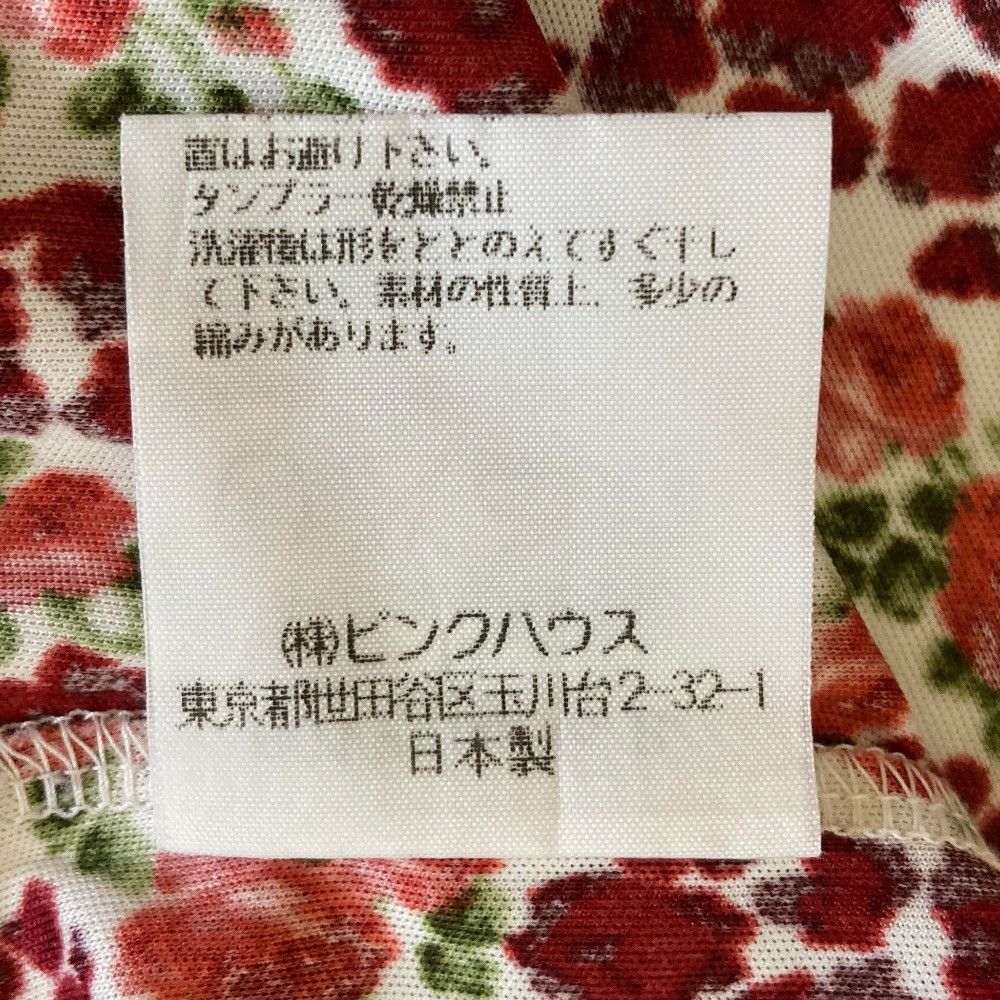 置はお避け下さい。
タンブラー乾燥禁止
洗濯後は形をととのえてすぐ干し
て下さい。素材の性質上、多少の
縮みがあります。
(株)ピンクハウス
東京都世田谷区玉川台2-32-1
日本製